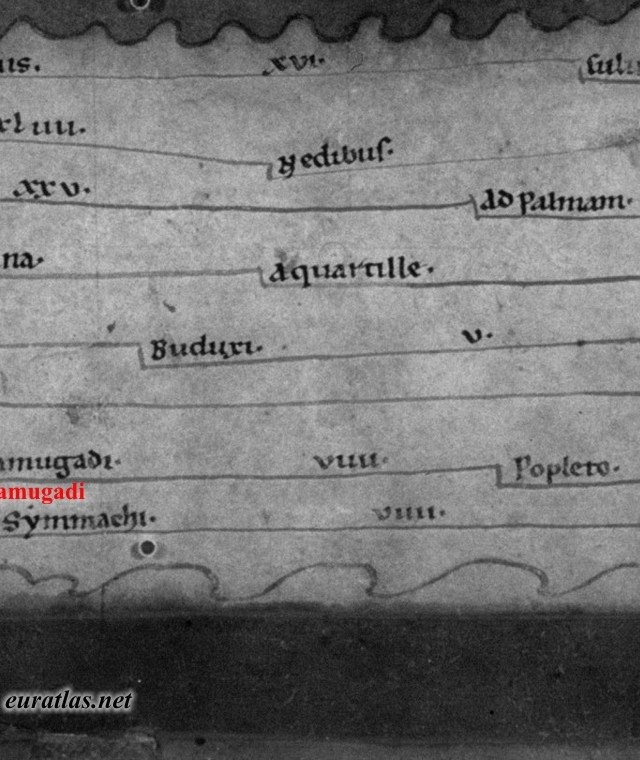 us. xvi.
rl uu.
gedibus.
xxv. ad palmam.
na.
aquartille.
Buduxi. v.
amugadi. vuu. Popleto.
amugadi
Symmachi. vuu.
euratlas.net